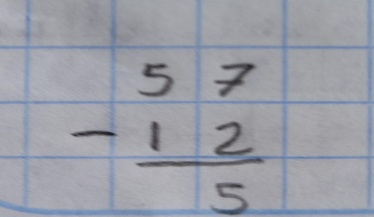 57
- 12
5